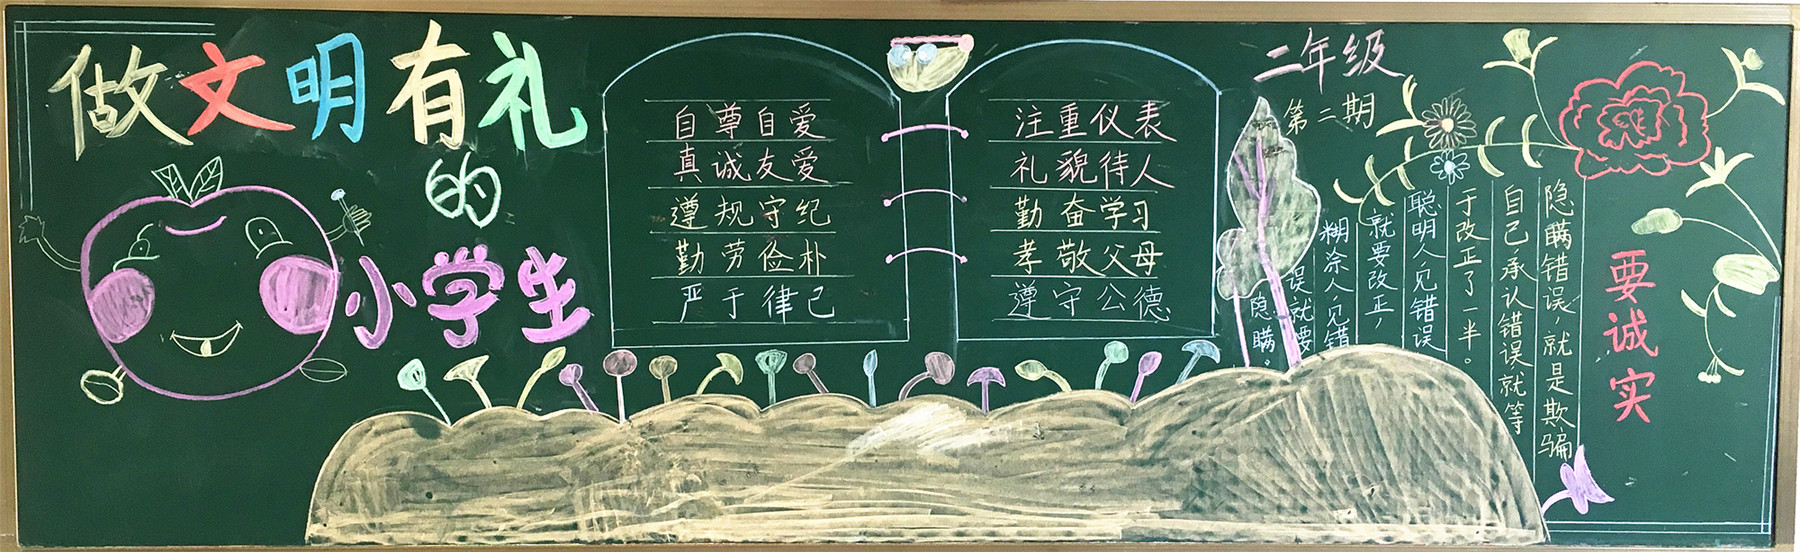 做文明有礼
的
小学生
自尊自爱
真诚友爱
遵规守纪
勤劳俭朴
严于律己
注重仪表
礼貌待人
勤奋学习
孝敬父母
遵守公德
二年级
第二期
要诚实
隐瞒错误就是欺骗
自己承认错误就等
于改正了一半。
聪明人见错误
就要改正，
糊涂人见错
误就要
隐瞒。